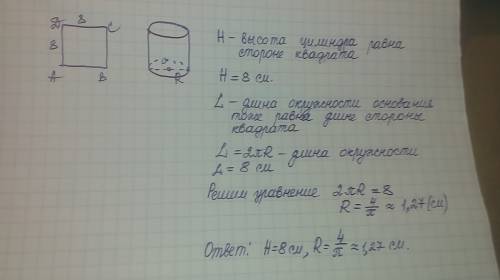 D 8 C
8
A B
R
H - высота цилиндра равна
стороне квадрата
H = 8 см.
L - длина окружности основания
тоже равна длине стороны
квадрата
L = 2πR - длина окружности
L = 8 см
Решим уравнение 2πR = 8
R = 4/π ≈ 1,27 (см)
Ответ: H = 8 см, R = 4/π ≈ 1,27 см.